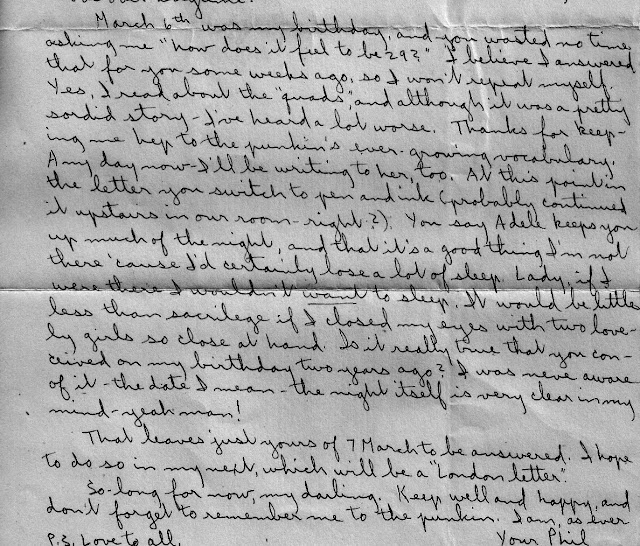 March 6th was my birthday, and you wasted no time
asking me "how does it feel to be 29?" I believe I answered
that for you some weeks ago, so I won't repeat myself.
Yes, I read about the "quads", and although it was a pretty
sordid story - I've heard a lot worse. Thanks for keep-
ing me hep to the punkin's ever-growing vocabulary.
Any day now - I'll be writing to her, too. At this point in
the letter you switch to pen and ink (probably continued
it upstairs in our room - right?). You say Adele keeps you
up much of the night, and that it's a good thing I'm not
there 'cause I'd certainly lose a lot of sleep. Lady, if I
were there I wouldn't want to sleep. It would be little
less than sacrilege if I closed my eyes with two love-
ly girls so close at hand. Is it really true that you con-
ceived on my birthday two years ago? I was never aware
of it - the date I mean - the night itself is very clear in my
mind - yeah man!
That leaves just yours of 7 March to be answered. I hope
to do so in my next, which will be a "London letter".
So-long for now, my darling. Keep well and happy, and
don't forget to remember me to the punkin. I am, as ever
P.S. Love to all. Your Phil